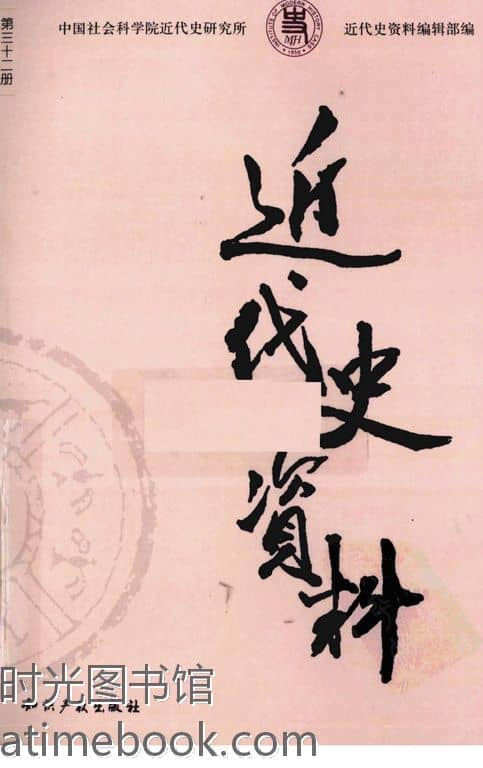 第三十二册
中国社会科学院近代史研究所
近代史资料编辑部编
MH
近代史资料
知识产权出版社
时光图书馆
atimebook.com